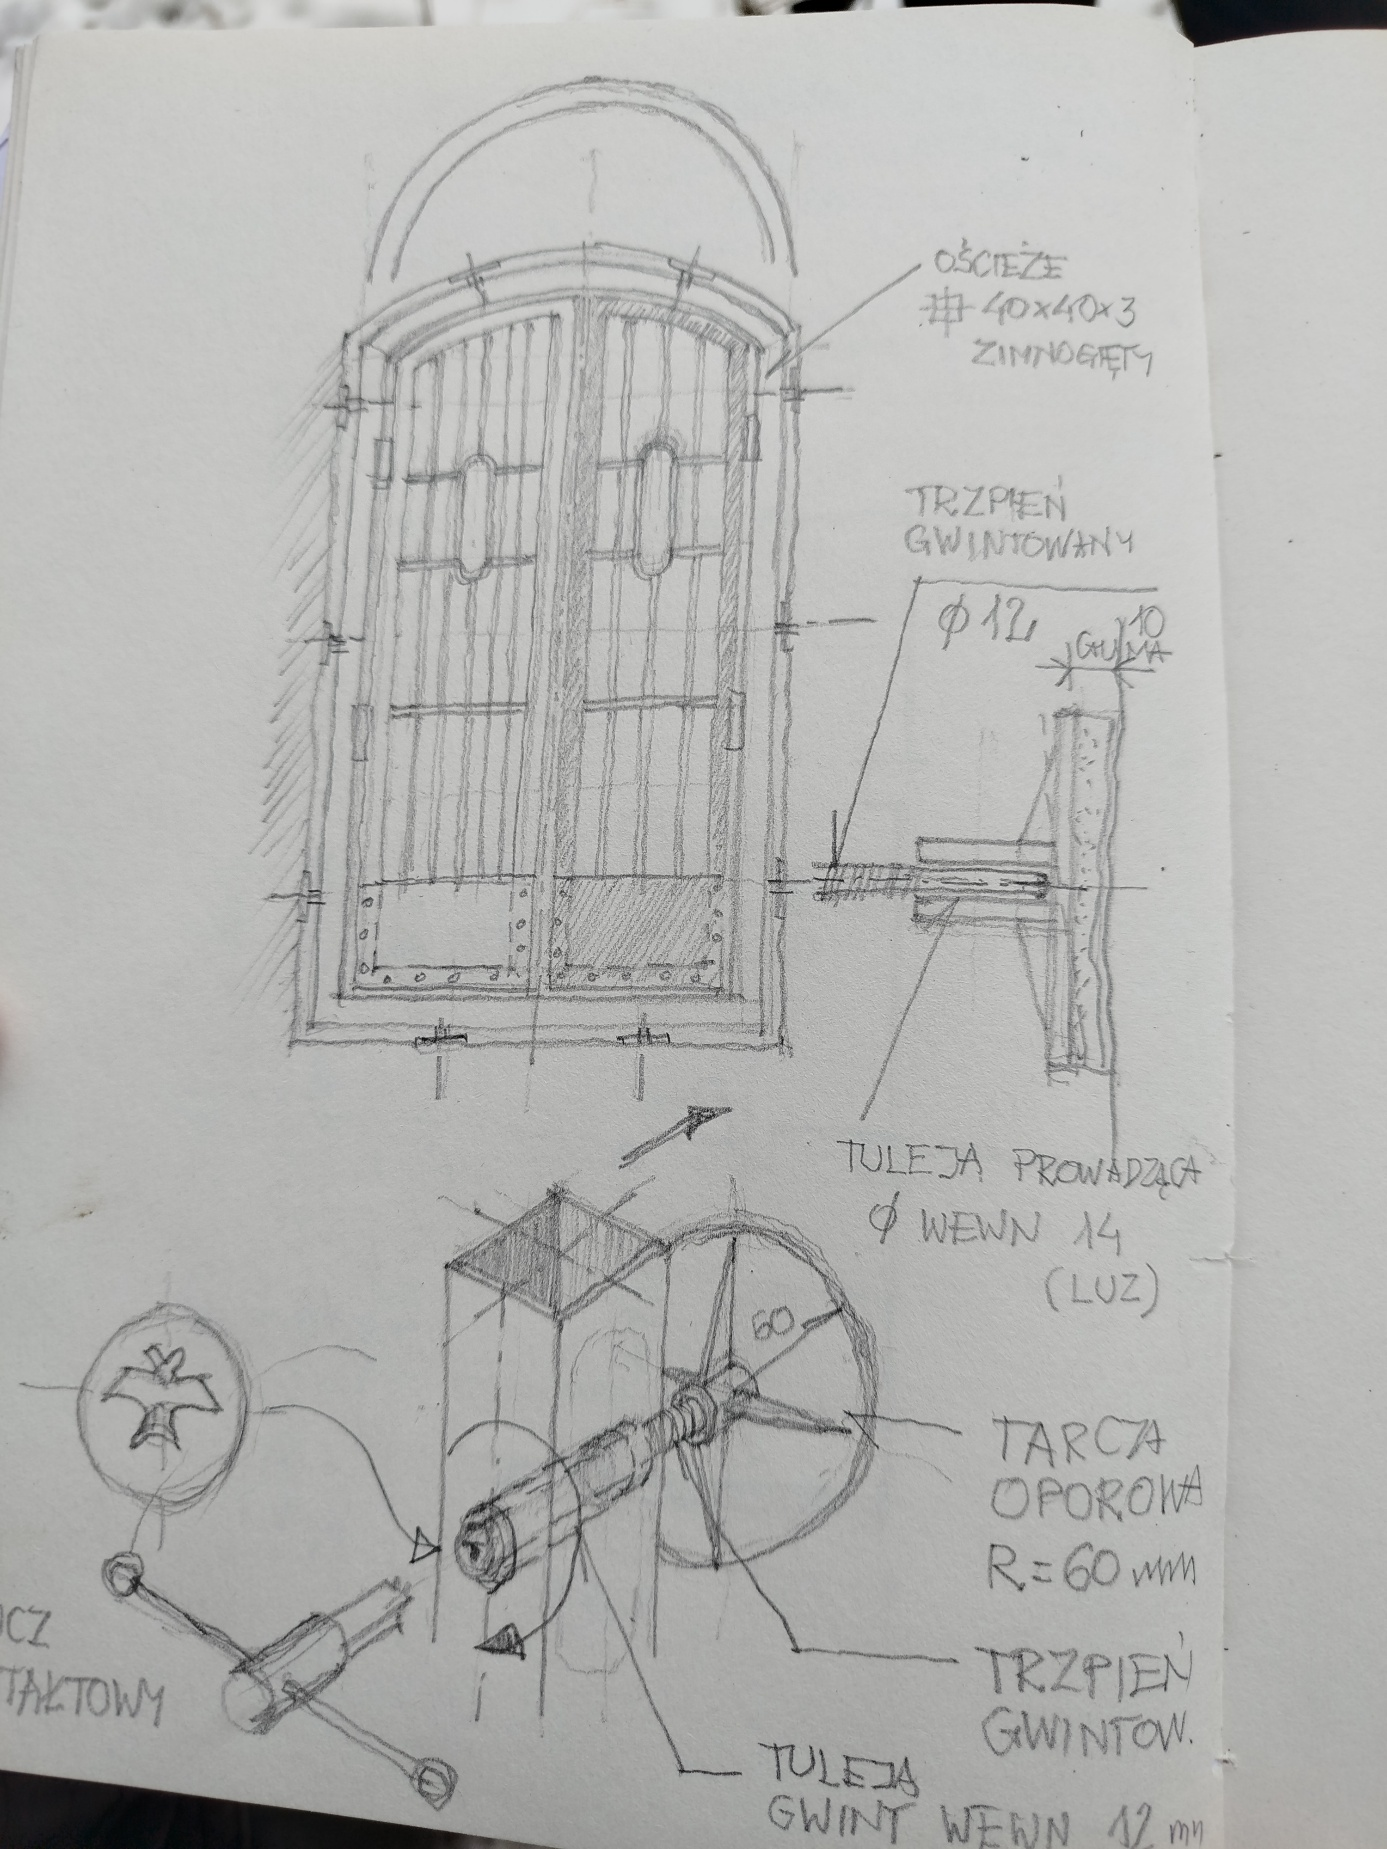 OŚCIEŻE
40x40x3
ZIMNOGIĘTY
TRZPIEŃ
GWINTOWANY
Ø 12
10
GUMA
TULEJA PROWADZĄCA
Ø WEWN 14
(LUZ)
60
TARCZA
OPOROWA
R=60 mm
TRZPIEŃ
GWINTOW.
TULEJA
GWINT WEWN 12 mm